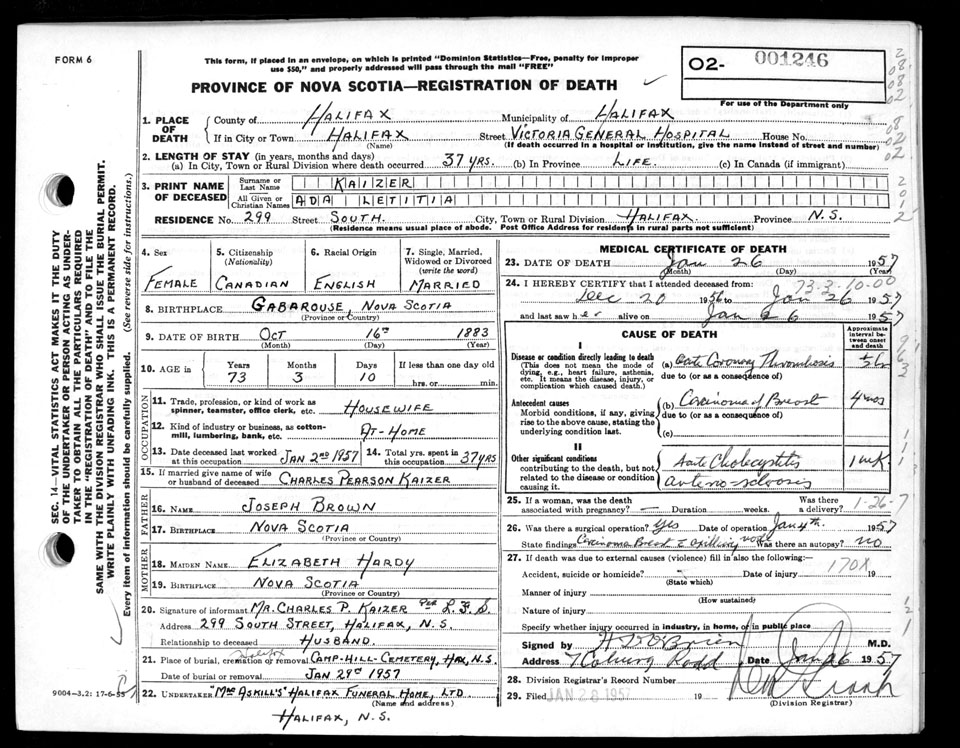 FORM 6
This form, if placed in an envelope, on which is printed "Dominion Statistics—Free, penalty for improper
use $50," and properly addressed will pass through the mail "FREE"
PROVINCE OF NOVA SCOTIA—REGISTRATION OF DEATH
O2- 001246
For use of the Department only
1. PLACE OF DEATH
County of HALIFAX Municipality of HALIFAX
If in City or Town HALIFAX Street VICTORIA GENERAL HOSPITAL House No.
(Name) (If death occurred in a hospital or institution, give the name instead of street and number)
2. LENGTH OF STAY (in years, months and days)
(a) In City, Town or Rural Division where death occurred 37 YRS. (b) In Province LIFE. (c) In Canada (if immigrant)
3. PRINT NAME OF DECEASED
Surname or Last Name KAIZER
All Given or Christian Names ADA LETITIA
RESIDENCE No. 299 Street SOUTH. City, Town or Rural Division HALIFAX. Province N.S.
(Residence means usual place of abode. Post Office Address for residents in rural parts not sufficient)
SEC. 14—VITAL STATISTICS ACT MAKES IT THE DUTY
OF THE UNDERTAKER OR PERSON ACTING AS UNDER-
TAKER TO OBTAIN ALL THE PARTICULARS REQUIRED
IN THE "REGISTRATION OF DEATH" AND TO FILE THE
SAME WITH THE DIVISION REGISTRAR WHO SHALL ISSUE THE BURIAL PERMIT.
WRITE PLAINLY WITH UNFADING INK. THIS IS A PERMANENT RECORD.
Every item of information should be carefully supplied. (See reverse side for instructions.)
4. Sex 5. Citizenship (Nationality) 6. Racial Origin 7. Single, Married, Widowed or Divorced (write the word)
FEMALE CANADIAN ENGLISH MARRIED
8. BIRTHPLACE GABAROUSE, NOVA SCOTIA
(Province or Country)
9. DATE OF BIRTH OCT 16TH 1883
(Month) (Day) (Year)
10. AGE in Years Months Days If less than one day old
73 3 10 hrs. or min.
OCCUPATION
11. Trade, profession, or kind of work as
spinner, teamster, office clerk, etc. HOUSEWIFE
12. Kind of industry or business, as cotton-
mill, lumbering, bank, etc. AT-HOME
13. Date deceased last worked at this occupation JAN 2ND 1957 14. Total yrs. spent in this occupation 37 YRS
15. If married give name of wife
or husband of deceased CHARLES PEARSON KAIZER
FATHER
16. NAME JOSEPH BROWN
17. BIRTHPLACE NOVA SCOTIA
(Province or Country)
MOTHER
18. MAIDEN NAME ELIZABETH HARDY
19. BIRTHPLACE NOVA SCOTIA
(Province or Country)
20. Signature of informant MR. CHARLES P. KAIZER PER
Address 299 SOUTH STREET, HALIFAX, N.S.
Relationship to deceased HUSBAND.
Halifax
21. Place of burial, cremation or removal CAMP-HILL-CEMETERY, HAX, N.S.
Date of burial or removal JAN 29TH 1957
22. UNDERTAKER HALIFAX FUNERAL HOME, LTD
(Name and address)
HALIFAX, N.S.
9004-3.2: 17-6-55
MEDICAL CERTIFICATE OF DEATH
23. DATE OF DEATH Jan 26 1957
(Month) (Day) (Year)
73-3-10-00
24. I HEREBY CERTIFY that I attended deceased from:
Dec 20 1956 to Jan 26 1957
and last saw her alive on Jan 26 1957
CAUSE OF DEATH
Approximate interval between onset and death
I
Disease or condition directly leading to death (a) Acute Coronary Thrombosis
(This does not mean the mode of dying, e.g., heart failure, asthenia, etc. It means the disease, injury, or complication which caused death.)
due to (or as a consequence of)
Antecedent causes (b) Carcinoma of Breast 4 mos
Morbid conditions, if any, giving rise to the above cause, stating the underlying condition last.
due to (or as a consequence of)
(c)
II
Other significant conditions Acute Cholecystitis 1 wk
contributing to the death, but not related to the disease or condition causing it.
25. If a woman, was the death associated with pregnancy? — Duration weeks. Was there a delivery? 1-26-7
26. Was there a surgical operation? Yes Date of operation Jan 4th. 1957
State findings Carcinoma Breast Was there an autopsy? no
27. If death was due to external causes (violence) fill in also the following:
170X
Accident, suicide or homicide? — Date of injury 19
(State which)
Manner of injury
(How sustained)
Nature of injury
Specify whether injury occurred in industry, in home, or in public place
Signed by O'Brien M.D.
Address 7 Coburg Road Date Jan 26 1957
28. Division Registrar's Record Number
29. Filed JAN 28 1957 19
(Division Registrar)